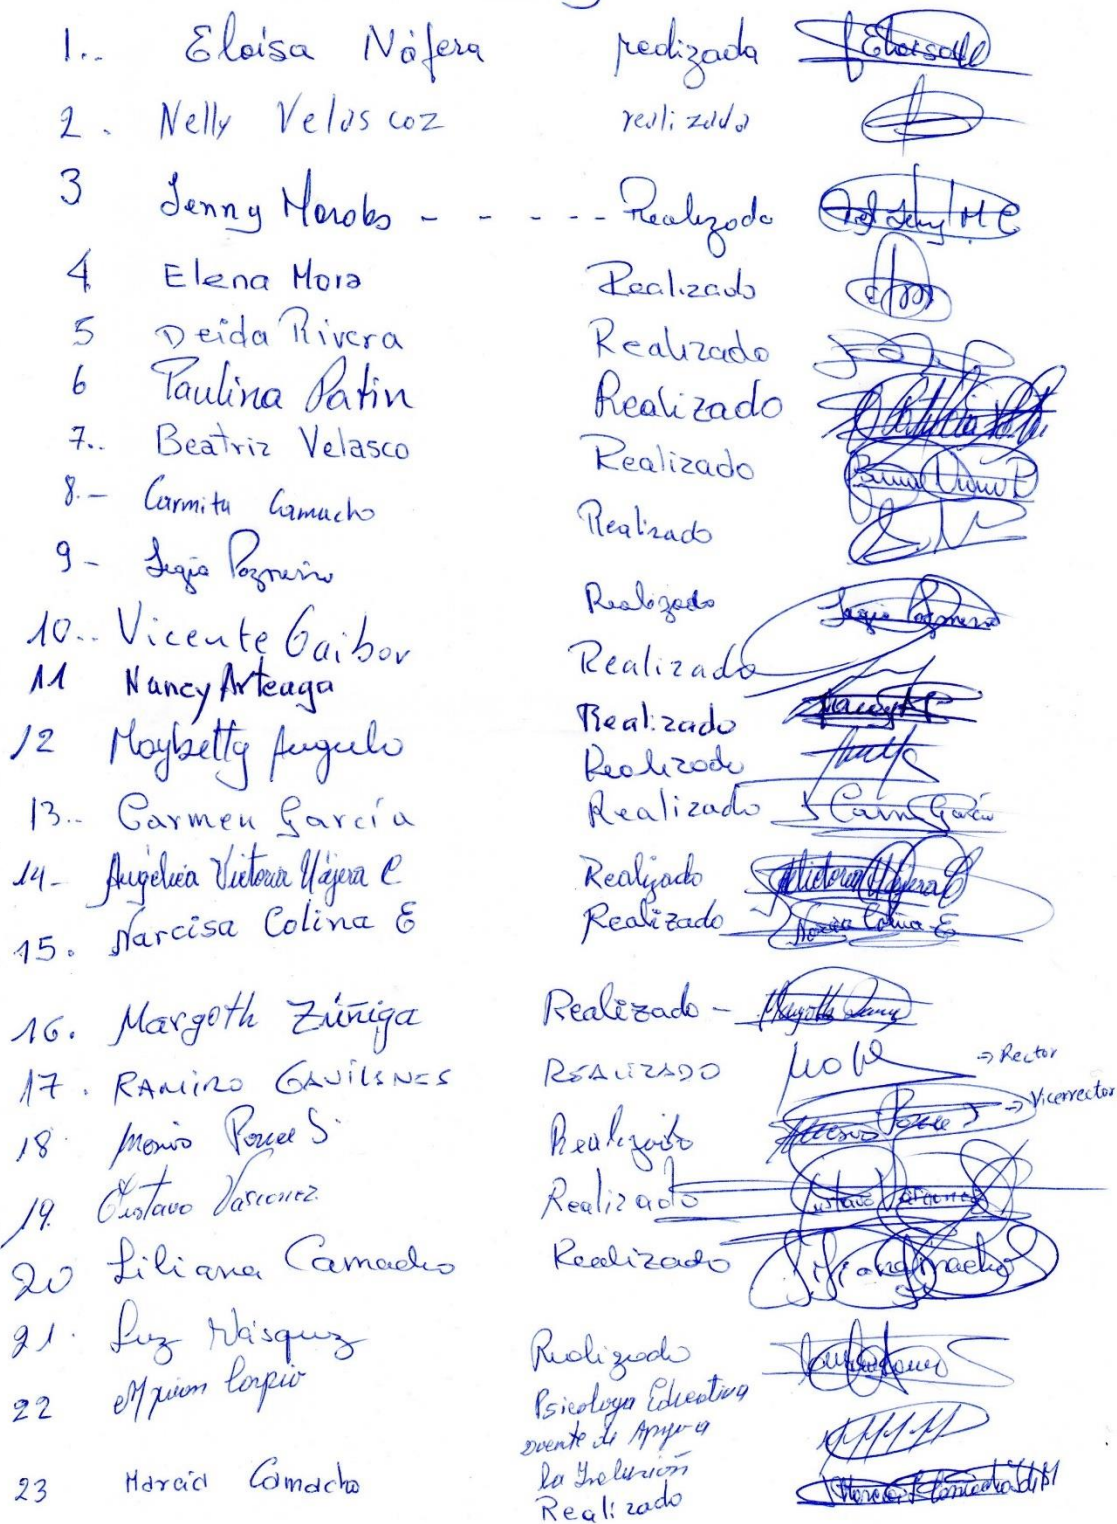 1.. Eloísa Nájera realizada Eloisa
2. Nelly Velascoz realizada
3 Jenny Morales - - - - - Realizado Jenny M C
4 Elena Mora Realizado
5 Deida Rivera Realizado
6 Paulina Patin Realizado
7.. Beatriz Velasco Realizado
8.- Carmita Camacho Realizado
9- Realizado
10.. Vicente Gaibor Realizado
11 Nancy Arteaga Realizado
12 Maybetty Angulo Realizado
13.. Carmen García Realizado Carm García
14- Angélica Victoria Nájera C Realizado Victoria Nájera C
15. Narcisa Colina E Realizado Narcisa Colina E
16. Margoth Zúñiga Realizado -
17. RAMIRO GAVILANES REALIZADO => Rector
18 Ponce S. Realizado => Vicerrector
19. Gustavo Vasconez Realizado Gustavo
20 Liliana Camacho Realizado
21. Luz Vásquez Realizado
22 Carpio Psicologa Educativa
Docente de Apoyo a
la Inclusión
23 Marcia Camacho Realizado